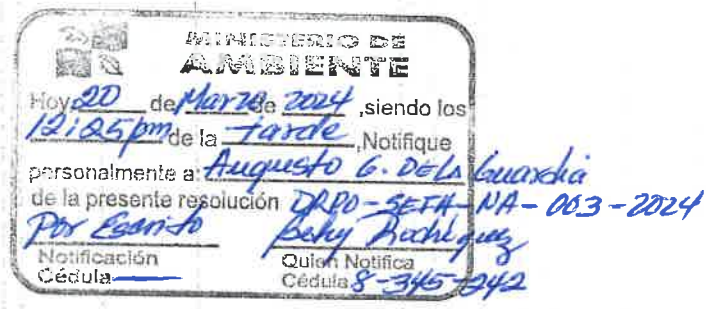 MINISTERIO DE
AMBIENTE
Hoy 20 de Marzo de 2024 ,siendo los
12:25pm de la tarde ,Notifique
personalmente a: Augusto G. DE LA Guardia
de la presente resolución DRPO-SEFA-NA-003-2024
Por Escrito Behy Rodriguez
Notificación Quien Notifica
Cédula Cédula 8-345-242